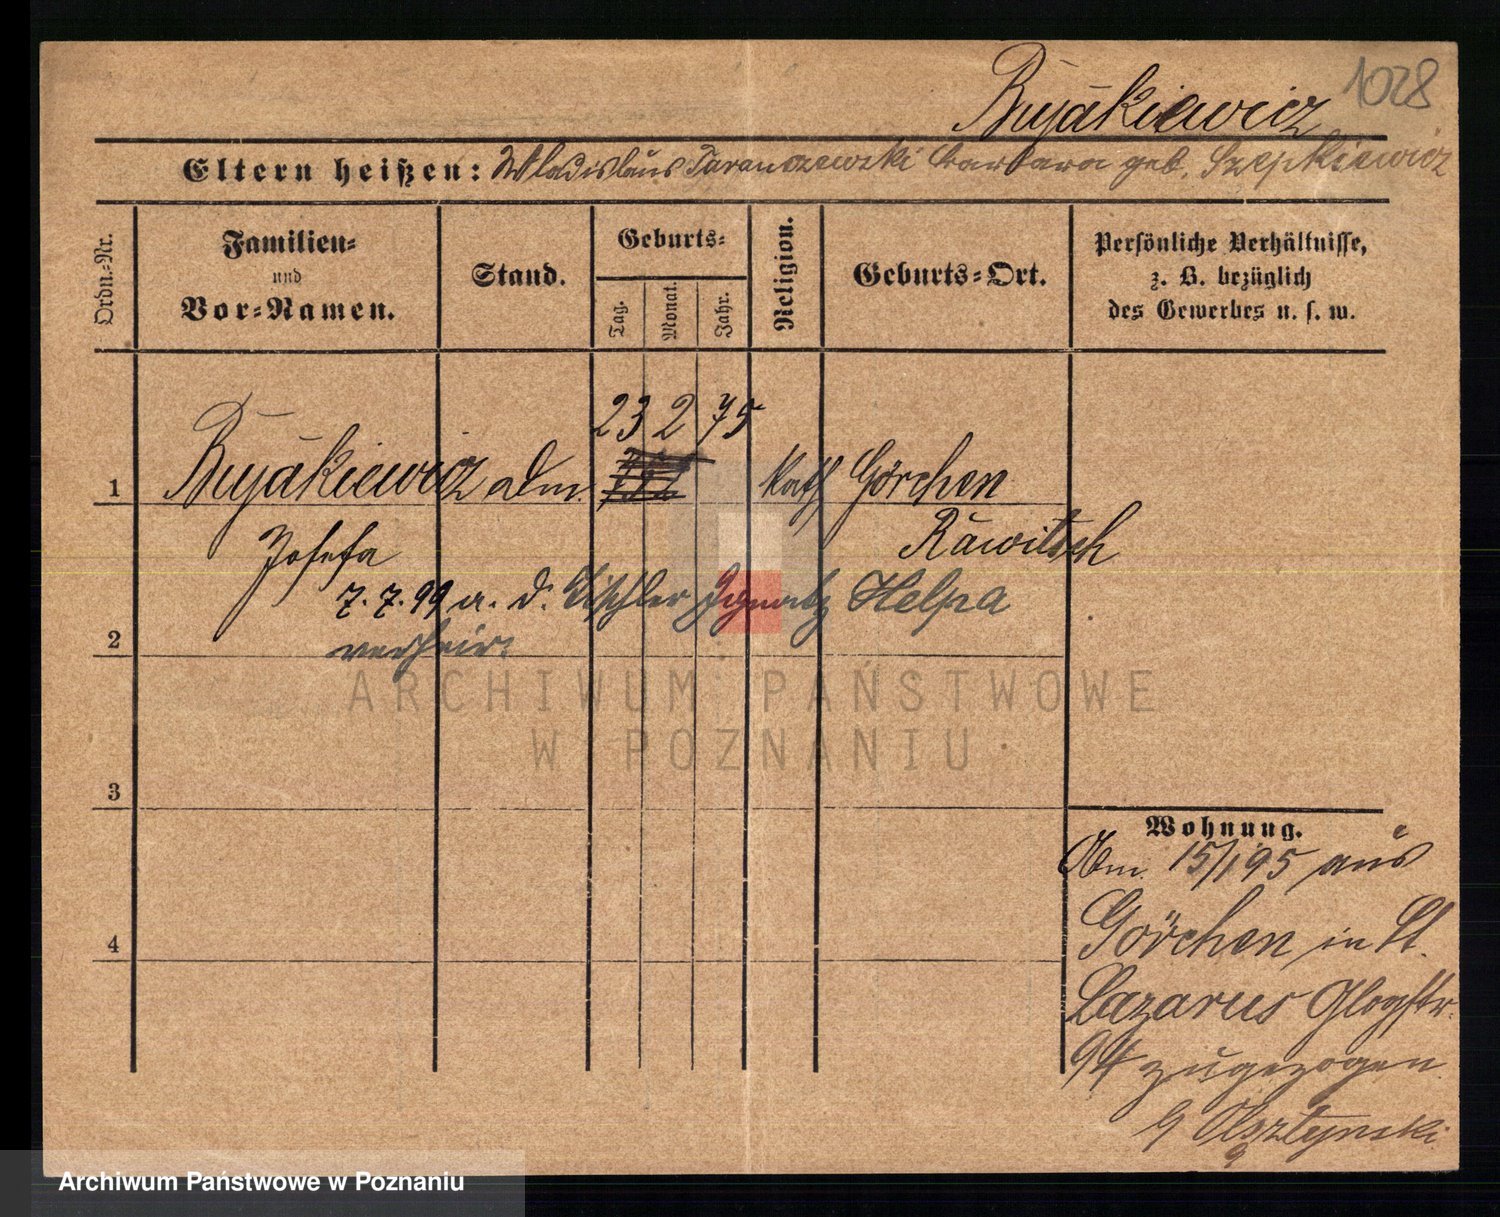 Bujakiewicz 1028
Eltern heißen: Wladislaus Taranczewski Barbara geb. Szepkiewicz
Ordn.-Nr.
Familien-
und
Vor-Namen.
Stand.
Geburts-
Tag.
Monat.
Jahr.
Religion.
Geburts-Ort.
Persönliche Verhältnisse,
z. B. bezüglich
des Gewerbes u. s. w.
23 2 75
1 Bujakiewicz kath Görchen
Josefa Rawitsch
7. 7. 99 a. d. Tischler Ignatz Helpa
2 verheir.
ARCHIWUM PAŃSTWOWE
W POZNANIU
3
4
Wohnung.
Am 15/1 95 aus
Görchen in St.
Lazarus Glogstr.
94 zugezogen.
Olsztynski
Archiwum Państwowe w Poznaniu